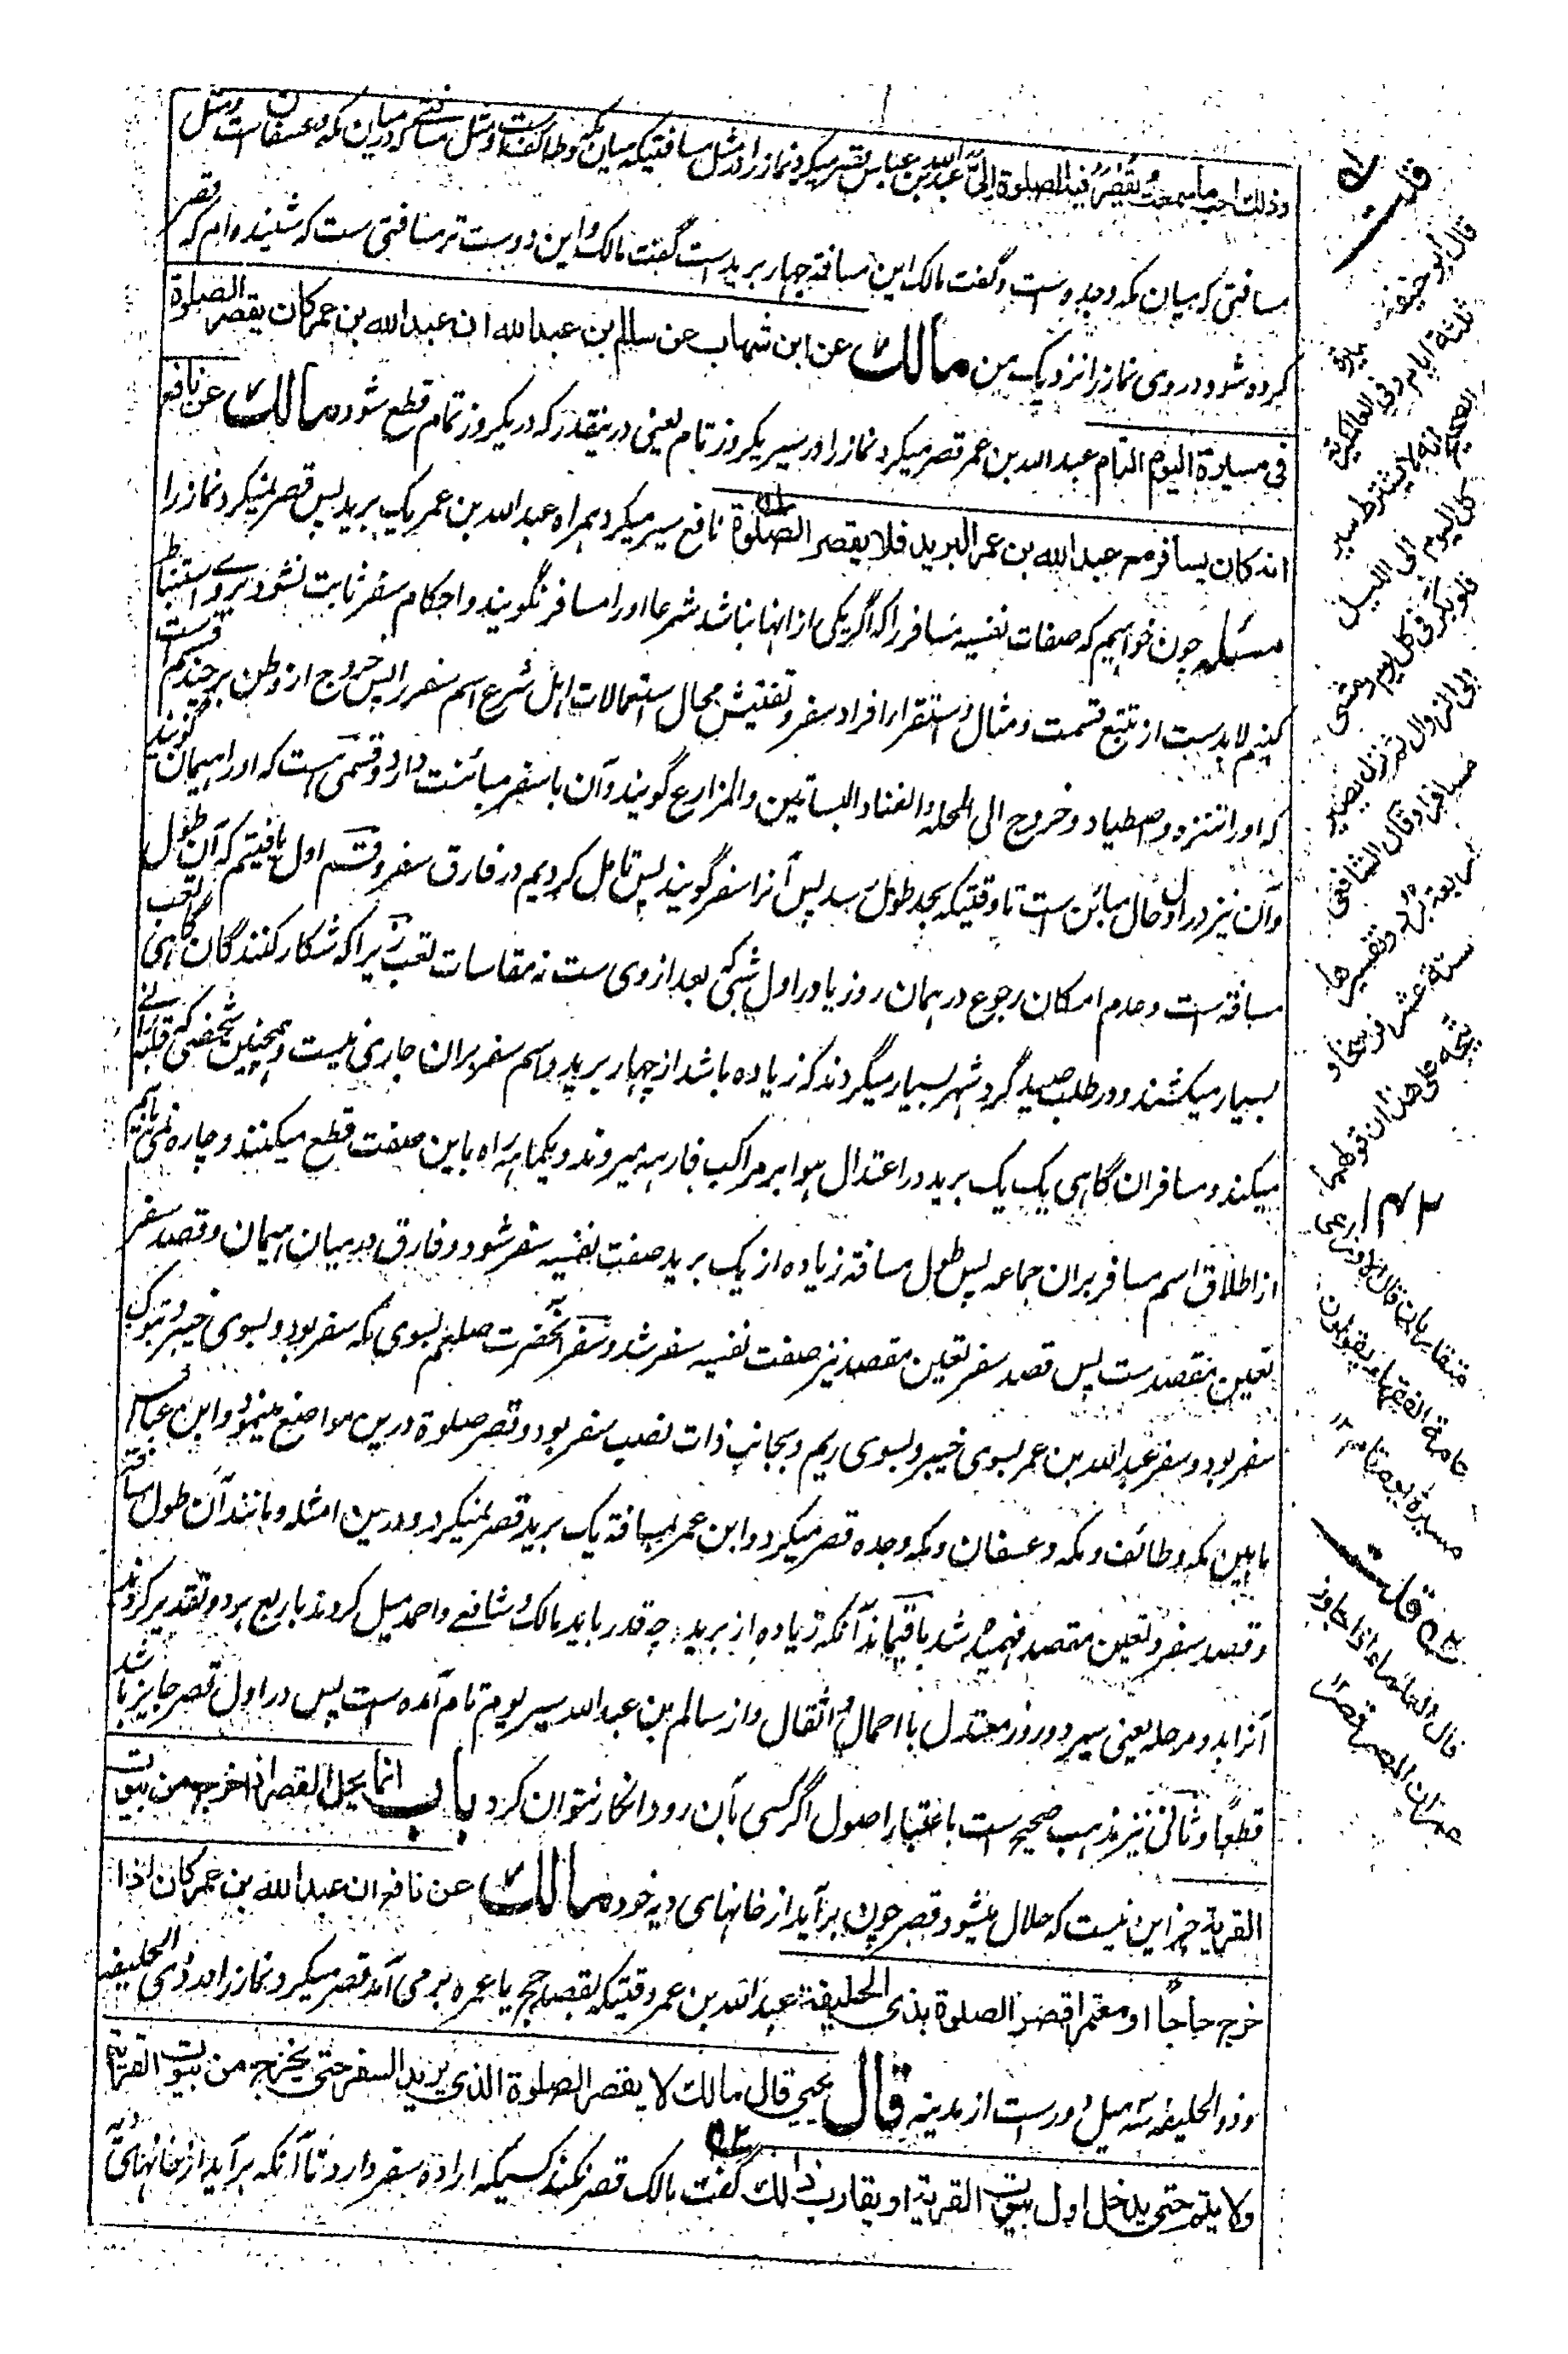 وذلك احب ما سمعت يقصر فيه الصلوة الىّ عبد الله بن عباس قصر میکرد نماز را در مثل مسافتیکه میان مکه و طائف است و مثل مسافتیکه در میان مکه و عسفان است و مثل
مسافتی که میان مکه و جده است و گفت مالک این مسافة چهار برید است گفت مالک و این دوست تر مسافتی ست که شنیده ام که قصر
کرده شود در وی نماز را نزدیک من مالك عن ابن شهاب عن سالم بن عبد الله ان عبد الله بن عمر كان يقصر الصلوة
في مسيرة اليوم التام عبد الله بن عمر قصر میکرد نماز را در سیر یکروز تام یعنی در ینقدر که در یکروز تمام قطع شود مالك عن نافع
انه كان يسافر مع عبد الله بن عمر البريد فلا يقصر الصلوة نافع سیر میکرد همراه عبد الله بن عمر یک برید پس قصر نمیکرد نماز را
مسئله چون خواهیم که صفات نفسیه مسافر را که اگر یکی از انها نباشد شرعا اورا مسافر نگویند و احکام سفر ثابت نشود بر وے استنباط
کنیم لابدست از تتبع قسمت و مثال و استقرار افراد سفر و تفتیش محال استعمالات اهل شرع اسم سفر را پس خروج از وطن بر چند قسم است
که اورا تنزه و اصطیاد و خروج الی المحله و الفناء و البساتین و المزارع گویند و آن با سفر مباینت دارد و قسمی است که اورا هیمان گویند
وآن نیز در اول حال مبائن است تا وقتیکه بحد طول رسد پس آنرا سفر گویند پس تامل کردیم در فارق سفر و قسم اول یافتیم که آن طول
مسافة ست و عدم امکان رجوع در همان روز یا در اول شبی که بعد از وی ست نه مقاسات تعب زیرا که شکار کنندگان گاهی تعب
بسیار میکشند و در طلب صید گرد شهر بسیار میگردند که زیاده باشد از چهار برید و اسم سفر بران جاری نیست و همچنین شخصی که قلبه رانے
میکند و مسافران گاهی یک یک برید در اعتدال هوا بر مراکب فارهه میروند و یکماهه راه باین صفت قطع میکنند و چاره نمی یابیم
از اطلاق اسم مسافر بران جماعه پس طول مسافة زیاده از یک برید صفت نفسیه سفر شود و فارق در میان هیمان و قصد سفر
تعین مقصد ست پس قصد سفر تعین مقصد نیز صفت نفسیه سفر شد و سفر آنحضرت صلعم بسوی مکه سفر بود و بسوی خیبر و تبوک
سفر بود و سفر عبد الله بن عمر بسوی خیبر و بسوی ریم و بجانب ذات نصب سفر بود و قصر صلوة درین مواضع مینمود و ابن عباس
مابین مکه و طائف و مکه و عسفان و مکه و جده قصر میکرد و ابن عمر بمسافة یک برید قصر نمیکرد و درین امثله و مانند آن طول مسافة
و قصد سفر و تعین مقصد فهمیده شد باقیماند آنکه زیاده از برید چه قدر باید مالک و شافعے و احمد میل کردند باربع برد و تقدیر کردند
آنرا بدو مرحله یعنی سیر دو روز معتدل با احمال و اثقال و از سالم بن عبد الله سیر یوم تام آمده ست پس در اول قصر جایز باشد
قطعًا و ثانی نیز مذهب صحیح ست باعتبار اصول اگر کسی بآن رود انکار نتوان کرد باب انما يحل القصر اذا خرج من بيوت
القرية جز این نیست که حلال میشود قصر چون برآید از خانهای دیه خود مالك عن نافع ان عبد الله بن عمر كان اذا
خرج حاجًا او معتمرا قصر الصلوة بذي الحليفة عبد الله بن عمر وقتیکه بقصد حج یا عمره بر می آمد قصر میکرد نماز را در ذی الحلیفه
و ذو الحلیفه سه میل دور است از مدینه قال يحيى قال مالك لا يقصر الصلوة الذي يريد السفر حتى يخرج من بيوت القرية
ولا يتم حتى يدخل اول بيوت القرية او يقارب ذلك گفت مالک قصر نکند کسیکه اراده سفر دارد تا آنکه برآید از خانهای دیه
قلت
قال ابو حنيفة
ثلثة ايام وفي العالمكيرية
الصحيح انه لا يشترط سير
كل اليوم الى الليل
فلو بكر في كل يوم ومشى
الى الزوال ثم نزل يصير
مسافرا وقال الشافعي
اربعة برد وتفسيرها
ستة عشر فرسخا و
يتجه على هذا ان قولهما
١٤٣
متقاربان قال الاوزاعي
عامة الفقهاء يقولون
مسيرة يوم تام ١٢
قلت
قال العلماء اذا جاوز
عمران المصر قصر ١٢